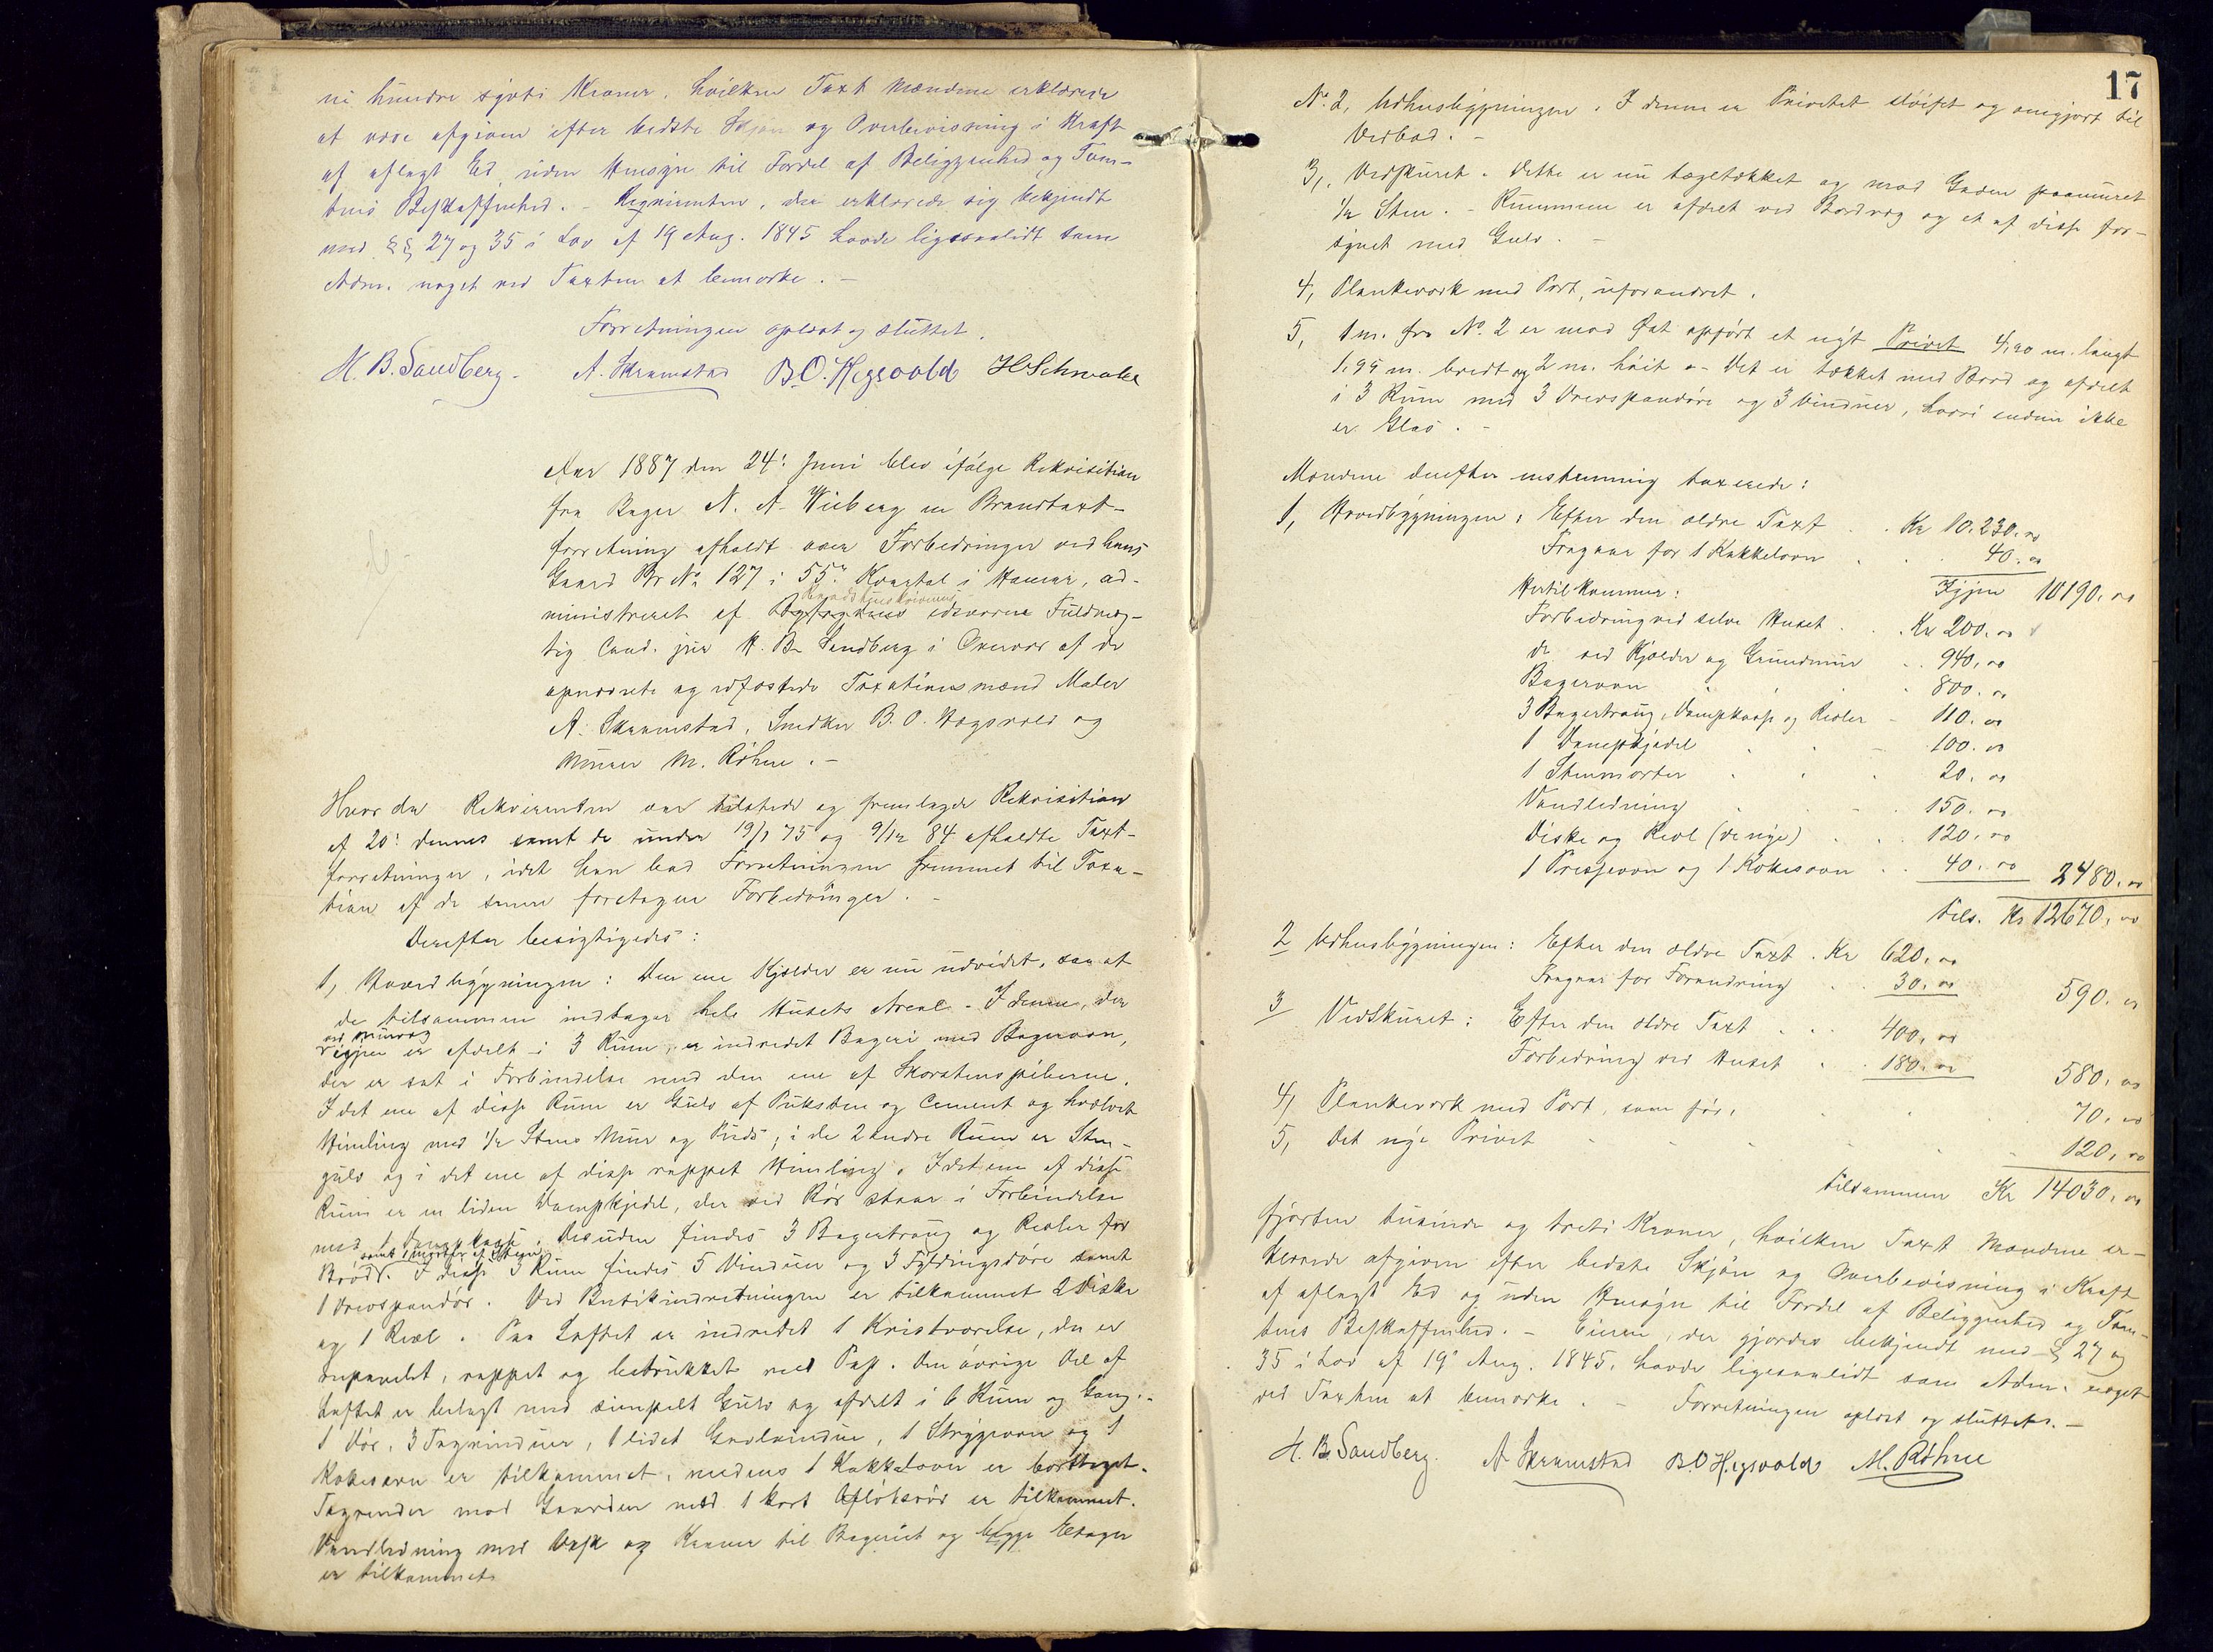 ni hundre sytti Kroner, hvilken Taxt Mændene erklærede
at være afgiven efter bedste Skjøn og Overbevisning i Kraft
af aflagt Ed uden Hensyn til Fordel af Beliggenhed og Tom-
tens Beskaffenhed. - Reqvirenten, der erklærede sig bekjendt
med §§ 27 og 35 i Lov af 19 Aug. 1845 havde ligesaalidt som
Adm. noget ved Taxten at bemærke. -
Forretningen oplæst og sluttet.
H. B. Sandberg. A. Skramstad B.O. Hegsvold H Schwabe
Aar 1887 den 24' Juni blev ifølge Rekvisition
fra Bager N. A. Wiberg en Brandtaxt-
forretning afholdt over Forbedringer ved hans
Gaard Br No 127 i 55' Kvartal i Hamar, ad-
ministreret af edsvorne Fuldmæg-
tig Cand. jur H. B. Sandberg i Overvær af de
opnævnte og edfæstede Taxationsmænd Maler
A. Skramstad, Snedker B. O. Hægsvold og
Murer M. Röhne. -
Hvor da Rekvirenten var tilstede og fremlagde Rekvisition
af 20' dennes samt de under 19/7 75 og 9/12 84 afholdte Taxt-
forretninger, idet han bad Forretningen fremmet til Taxa-
tion af de senere foretagne Forbedringer. -
Derefter besigtigedes:
1, Hovedbygningen: Den ene Kjælder er nu udvidet, saa at
de tilsammen indtager hele Husets Areal. I denne, der
ved Murvæg
igjen er afdelt i 3 Rum, er indredet Bageri med Bagerovn,
der er sat i Forbindelse med den ene af Skorstenspiberne.
I det ene af disse Rum er Gulv af Puksten og Cement og hvælvet
Himling med 1/2 Stens Mur og Puds; i de 2 andre Rum er Sten-
gulv og i det ene af disse rappet Himling. I det ene af disse
Rum er en liden Dampkjedel, der ved Rør staar i Forbindelse
med 1 Dampkasse. Desuden findes 3 Bagertraug og Reoler for
samt 1 Morter af Sten
Brød. I disse 3 Rum findes 5 Vinduer og 3 Fyldingsdøre samt
1 Drevspandør. Ved Butikindretningen er tilkommet 2 Diske
og 1 Reol. Paa Loftet er indredet 1 Kvistværelse, der er
rupanelt, rappet og betrukket med Pap. Den øvrige Del af
Loftet er belagt med simpelt Gulv og afdelt i 6 Rum og Gang.
1 Dør, 3 Tagvinduer, 1 lidet Gavlvindue, 1 Strygeovn og 1
Kokesovn er tilkommet, medens 1 Kakkelovn er borttaget.
Tagrender mod Gaarden med 1 kort Afløbsrør er tilkommet.
Vandledning med Vask og Kraner til Bageriet og begge Etager
er tilkommet.
17
No 2, Udhusbygningen. I denne er Privetet sløifet og omgjort til
Vedbod. -
3, Vedskuret. Dette er nu tagtækket og mod Gaden paamuret
1/2 Sten. - Rummene er afdelt ved Bordvæg og et af disse for-
synet med Gulv. -
4, Plankeværk med Port, uforandret.
5, 1 m. fra No 2 er mod Øst opført et nyt Privet 4,20 m. langt
1,95 m. bredt og 2 m. høit - Det er tækket med Bord og afdelt
i 3 Rum med 3 Drevspandøre og 3 Vinduer, hvori endnu ikke
er Glas. -
Mændene derefter enstemmig taxerede:
1, Hovedbygningen: Efter den ældre Taxt . . Kr 10.230. 00
Fragaar for 1 Kakkelovn . . 40. 00
Igjen 10190. 00
Hertil kommer:
Forbedring ved selve Huset . . Kr 200. 00
do ved Kjælder og Grundmur . . 940, 00
Bagerovn . . . 800. 00
3 Bagertraug, Dampkasse og Reoler - 110. 00
1 Dampkjedel . . - 100. 00
1 Stenmorter . . . 20. 00
Vandledning . . - 150. 00
Diske og Reol (de nye) . . 120. 00
1 Presseovn og 1 Kokesovn . . 40. 00 2480. 00
Tils. Kr 12670, 00
2 Udhusbygningen: Efter den ældre Taxt . Kr 620, 00
Fragaar for Forandring . . 30. 00 590. 00
3 Vedskuret: Efter den ældre Taxt . . . 400, 00
Forbedring ved Huset . . 180. 00 580, 00
4, Plankeværk med Port, som før, . . . 70, 00
5, Det nye Privet - - - . - 120, 00
tilsammen Kr 14030, 00
fjorten tusinde og treti Kroner, hvilken Taxt Mændene er-
klærede afgiven efter bedste Skjøn og Overbevisning i Kraft
af aflagt Ed og uden Hensyn til Fordel af Beliggenhed og Tom-
tens Beskaffenhed. - Eieren, der gjordes bekjendt med § 27 og
35 i Lov af 19' Aug. 1845, havde ligesaalidt som Adm. noget
ved Taxten at bemærke. - Forretningen oplæst og sluttet. -
H. B. Sandberg. A. Skramstad B.O Hegsvold M. Röhne